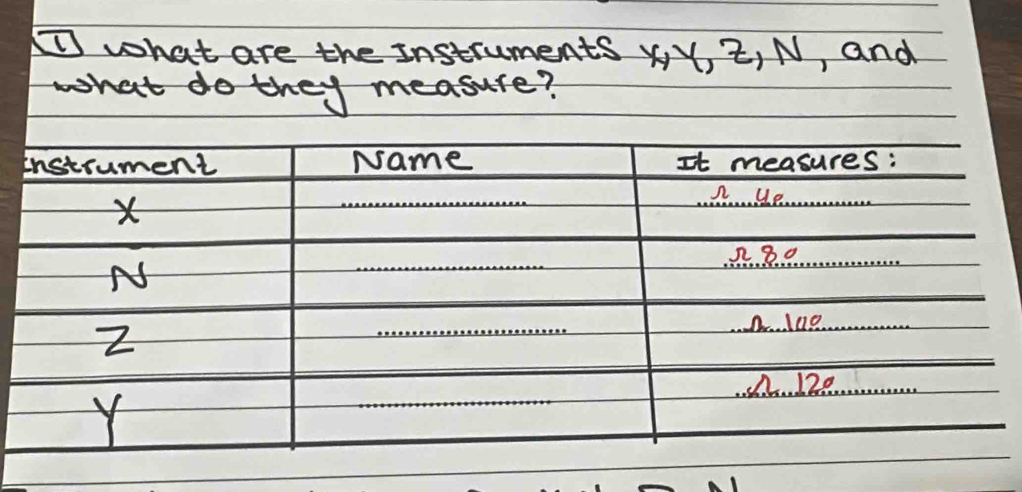 ① what are the Instruments X, Y, Z, N, and
what do they measure?
Instrument Name It measures:
X ............ Ω 40
N ............ Ω 80
Z ............ Ω 100
Y ............ Ω 120